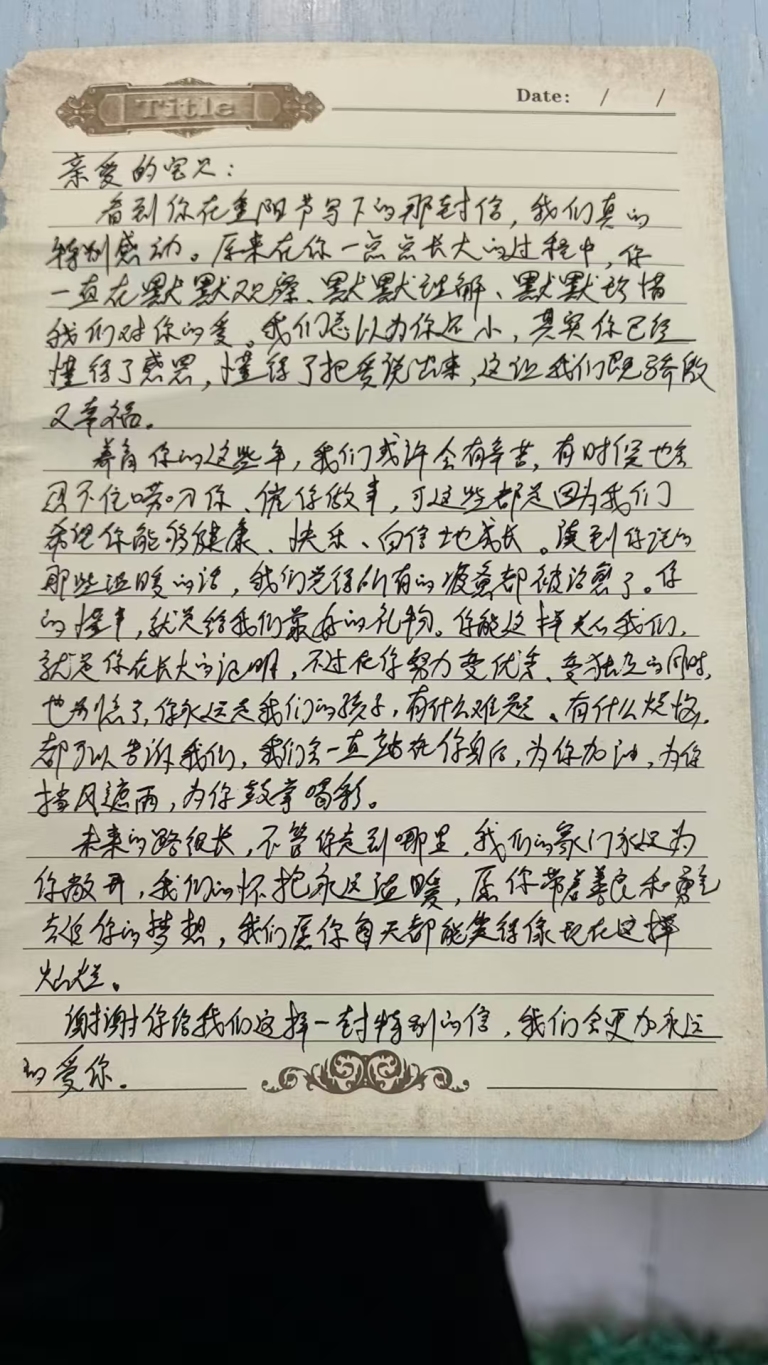 Title
Date: / /
亲爱的宝贝：
看到你在重阳节写下的那封信，我们真的
特别感动。原来在你一点点长大的过程中，你
一直在默默观察、默默理解、默默珍惜
我们对你的爱。我们总以为你还小，其实你已经
懂得了感恩，懂得了把爱说出来，这让我们既骄傲
又幸福。
养育你的这些年，我们或许会有辛苦，有时候也会
忍不住唠叨你、催你做事，可这些都是因为我们
希望你能够健康、快乐、自信地成长。读到你说的
那些温暖的话，我们觉得所有的疲惫都被治愈了。你
的懂事，就是给我们最好的礼物。你能这样关心我们，
就是你在长大的证明，不过在你努力变优秀、变独立的同时，
也别忘了，你永远是我们的孩子，有什么难题、有什么烦恼，
都可以告诉我们，我们会一直站在你身后，为你加油，为你
挡风遮雨，为你鼓掌喝彩。
未来的路很长，不管你走到哪里，我们的家门永远为
你敞开，我们的怀抱永远温暖，愿你带着善良和勇气
去追你的梦想，我们愿你每天都能笑得像现在这样
灿烂。
谢谢你给我们这样一封特别的信，我们会更加永远
的爱你。